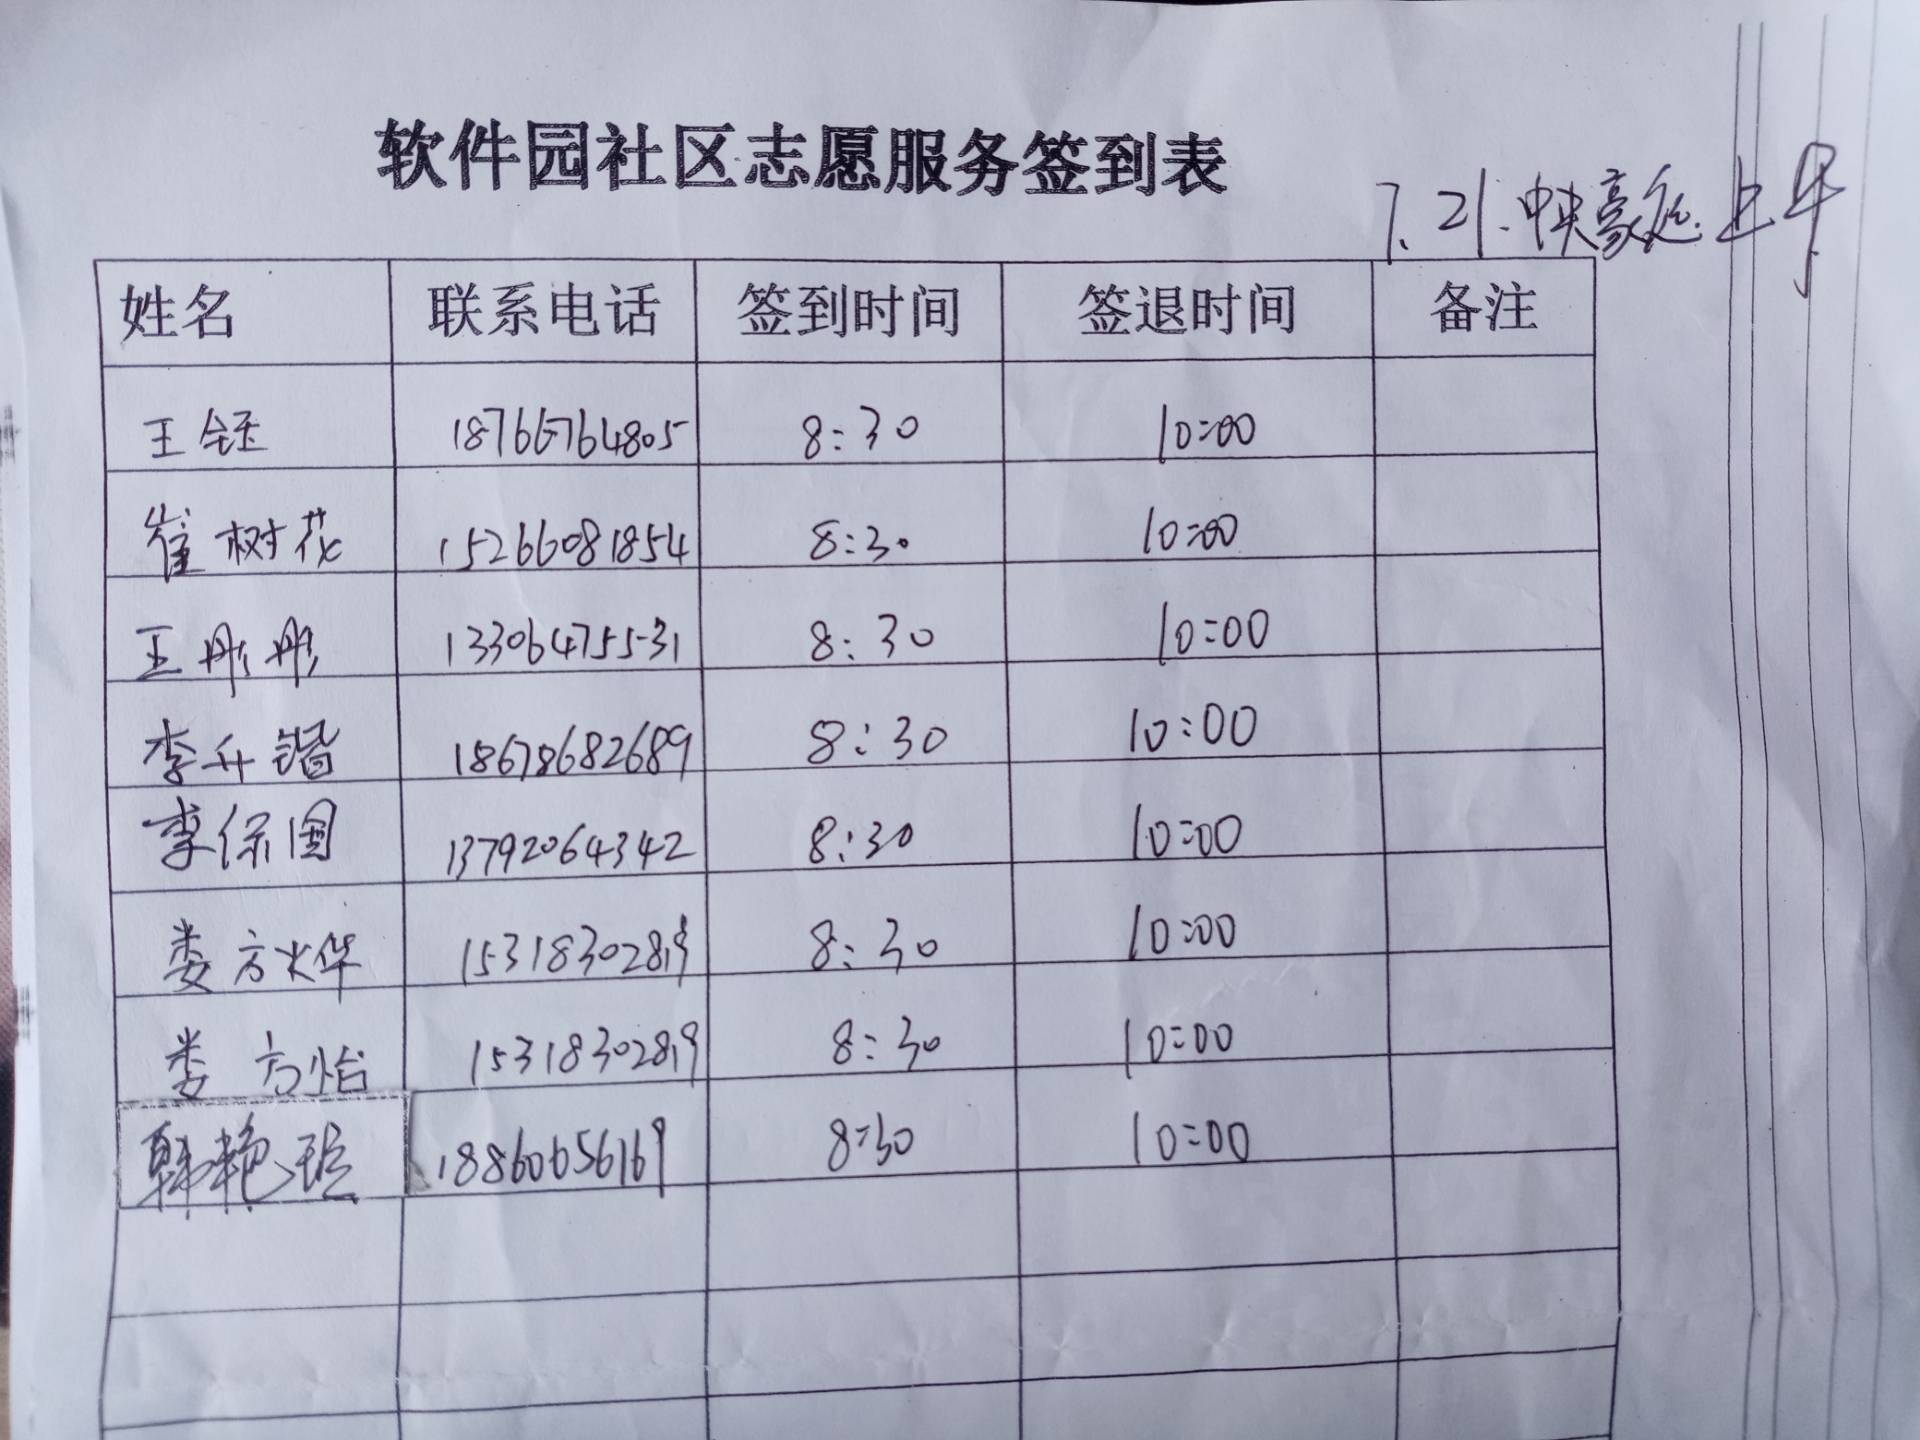 软件园社区志愿服务签到表
7.21.中央豪庭.上午
姓名 联系电话 签到时间 签退时间 备注
王钰 18766764805 8:30 10:00
崔树花 15266081854 8:30 10:00
王彤彤 13306475531 8:30 10:00
李升锴 18678682689 8:30 10:00
李保国 13792064342 8:30 10:00
娄方烨 15318302819 8:30 10:00
娄方怡 15318302819 8:30 10:00
韩艳琨 18860656169 8:30 10:00